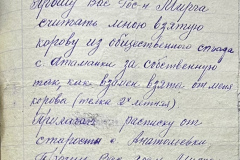 Прошу Вас Гос-н Мирга
считать мною взятую
корову из общественного стада
с Атамановки за собственную
так, как взамен взята от меня
корова (телка 2х летняя)
Прилагаю расписку от
старосты с. Анатольевки